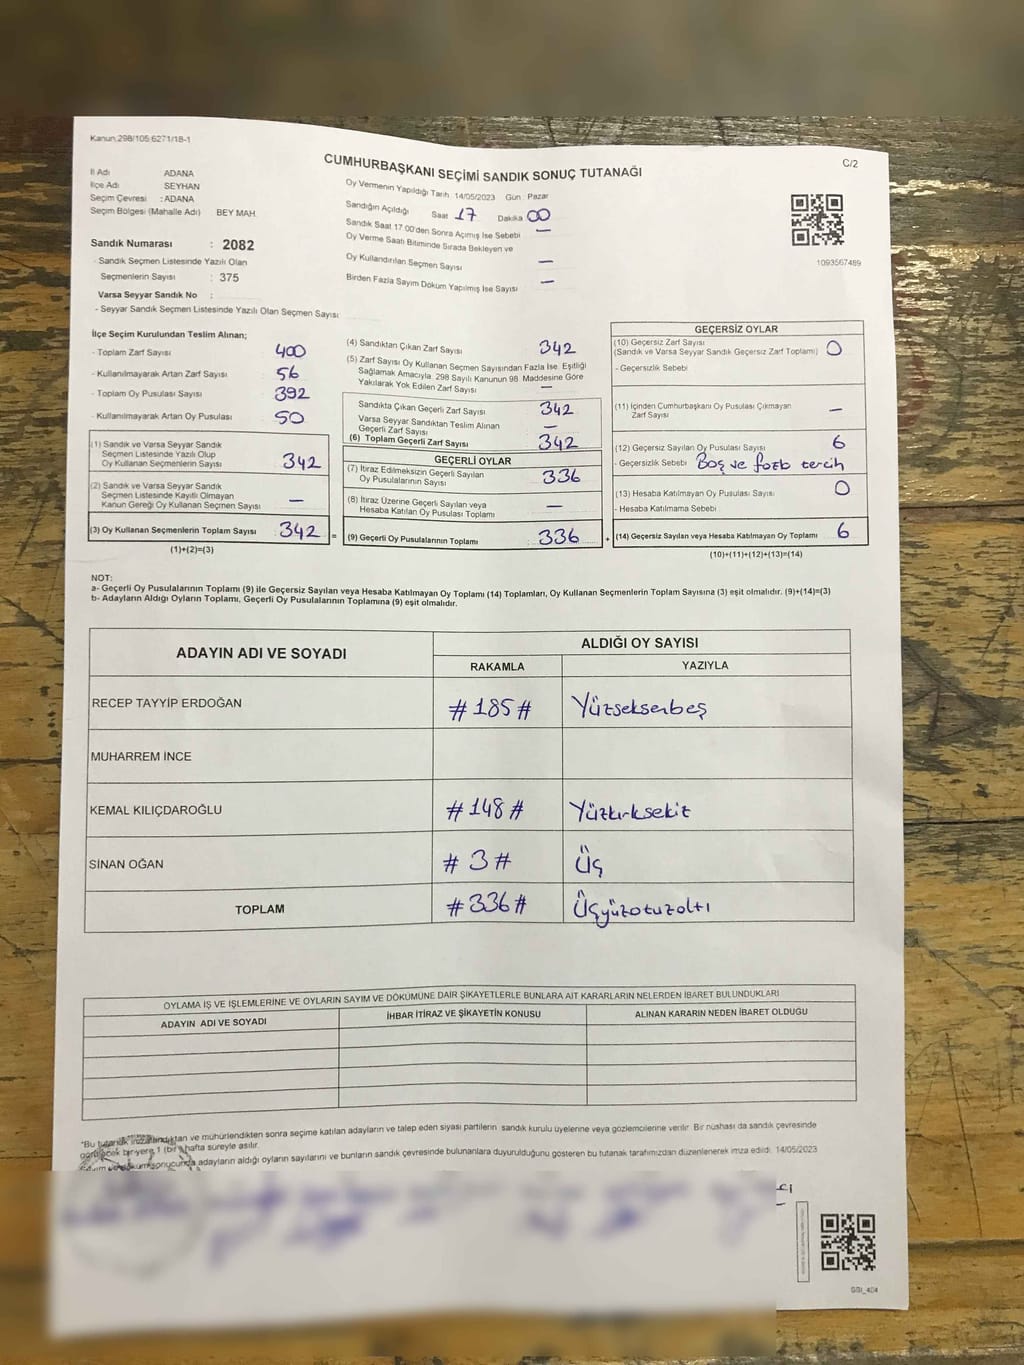 Kanun:298/105;6271/18-1
C/2
CUMHURBAŞKANI SEÇİMİ SANDIK SONUÇ TUTANAĞI
İl Adı ADANA
İlçe Adı SEYHAN
Seçim Çevresi : ADANA
Seçim Bölgesi (Mahalle Adı) BEY MAH.
Sandık Numarası : 2082
- Sandık Seçmen Listesinde Yazılı Olan
Seçmenlerin Sayısı : 375
Varsa Seyyar Sandık No :
- Seyyar Sandık Seçmen Listesinde Yazılı Olan Seçmen Sayısı:
Oy Vermenin Yapıldığı Tarih 14/05/2023 Gün : Pazar
Sandığın Açıldığı Saat 17 Dakika 00
Sandık Saat 17:00'den Sonra Açımış İse Sebebi —
Oy Verme Saati Bitiminde Sırada Bekleyen ve
Oy Kullandırılan Seçmen Sayısı —
Birden Fazla Sayım Döküm Yapılmış İse Sayısı —
1093567489
İlçe Seçim Kurulundan Teslim Alınan;
- Toplam Zarf Sayısı 400
- Kullanılmayarak Artan Zarf Sayısı 56
- Toplam Oy Pusulası Sayısı 392
- Kullanılmayarak Artan Oy Pusulası 50
(1) Sandık ve Varsa Seyyar Sandık
Seçmen Listesinde Yazılı Olup
Oy Kullanan Seçmenlerin Sayısı 342
(2) Sandık ve Varsa Seyyar Sandık
Seçmen Listesinde Kayıtlı Olmayan
Kanun Gereği Oy Kullanan Seçmen Sayısı —
(3) Oy Kullanan Seçmenlerin Toplam Sayısı 342 =
(1)+(2)=(3)
(4) Sandıktan Çıkan Zarf Sayısı 342
(5) Zarf Sayısı Oy Kullanan Seçmen Sayısından Fazla İse, Eşitliği
Sağlamak Amacıyla, 298 Sayılı Kanunun 98. Maddesine Göre
Yakılarak Yok Edilen Zarf Sayısı —
Sandıkta Çıkan Geçerli Zarf Sayısı 342
Varsa Seyyar Sandıktan Teslim Alınan
Geçerli Zarf Sayısı —
(6) Toplam Geçerli Zarf Sayısı 342
GEÇERLİ OYLAR
(7) İtiraz Edilmeksizin Geçerli Sayılan
Oy Pusulalarının Sayısı 336
(8) İtiraz Üzerine Geçerli Sayılan veya
Hesaba Katılan Oy Pusulası Toplamı —
(9) Geçerli Oy Pusulalarının Toplamı 336 +
GEÇERSİZ OYLAR
(10) Geçersiz Zarf Sayısı
(Sandık ve Varsa Seyyar Sandık Geçersiz Zarf Toplamı) 0
- Geçersizlik Sebebi
(11) İçinden Cumhurbaşkanı Oy Pusulası Çıkmayan
Zarf Sayısı —
(12) Geçersiz Sayılan Oy Pusulası Sayısı 6
- Geçersizlik Sebebi Boş ve fazla tercih
(13) Hesaba Katılmayan Oy Pusulası Sayısı 0
- Hesaba Katılmama Sebebi
(14) Geçersiz Sayılan veya Hesaba Katılmayan Oy Toplamı 6
(10)+(11)+(12)+(13)=(14)
NOT:
a- Geçerli Oy Pusulalarının Toplamı (9) ile Geçersiz Sayılan veya Hesaba Katılmayan Oy Toplamı (14) Toplamları, Oy Kullanan Seçmenlerin Toplam Sayısına (3) eşit olmalıdır. (9)+(14)=(3)
b- Adayların Aldığı Oyların Toplamı, Geçerli Oy Pusulalarının Toplamına (9) eşit olmalıdır.
ADAYIN ADI VE SOYADI ALDIĞI OY SAYISI
RAKAMLA YAZIYLA
RECEP TAYYİP ERDOĞAN #185# Yüzseksenbeş
MUHARREM İNCE
KEMAL KILIÇDAROĞLU #148# Yüzkırksekiz
SİNAN OĞAN #3# Üç
TOPLAM #336# Üçyüzotuzaltı
OYLAMA İŞ VE İŞLEMLERİNE VE OYLARIN SAYIM VE DÖKÜMÜNE DAİR ŞİKAYETLERLE BUNLARA AİT KARARLARIN NELERDEN İBARET BULUNDUKLARI
ADAYIN ADI VE SOYADI İHBAR İTİRAZ VE ŞİKAYETİN KONUSU ALINAN KARARIN NEDEN İBARET OLDUĞU
*Bu tutanak imzalandıktan ve mühürlendikten sonra seçime katılan adayların ve talep eden siyasi partilerin sandık kurulu üyelerine veya gözlemcilerine verilir. Bir nüshası da sandık çevresinde
görülecek bir yere 1 (bir) hafta süreyle asılır.
sonucunda adayların aldığı oyların sayılarını ve bunların sandık çevresinde bulunanlara duyurulduğunu gösteren bu tutanak tarafımızdan düzenlenerek imza edildi. 14/05/2023
GBI_404